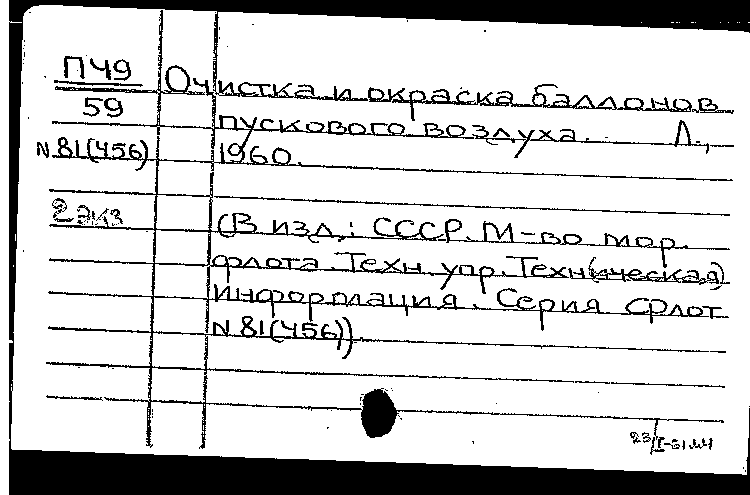 ПЧ9
59
N 81(456)
2 экз
Очистка и окраска баллонов
пускового воздуха. Л.,
1960.
(В изд.: СССР. М-во мор.
флота. Техн. упр. Техн(ическая)
информация. Серия Флот
N 81(456))